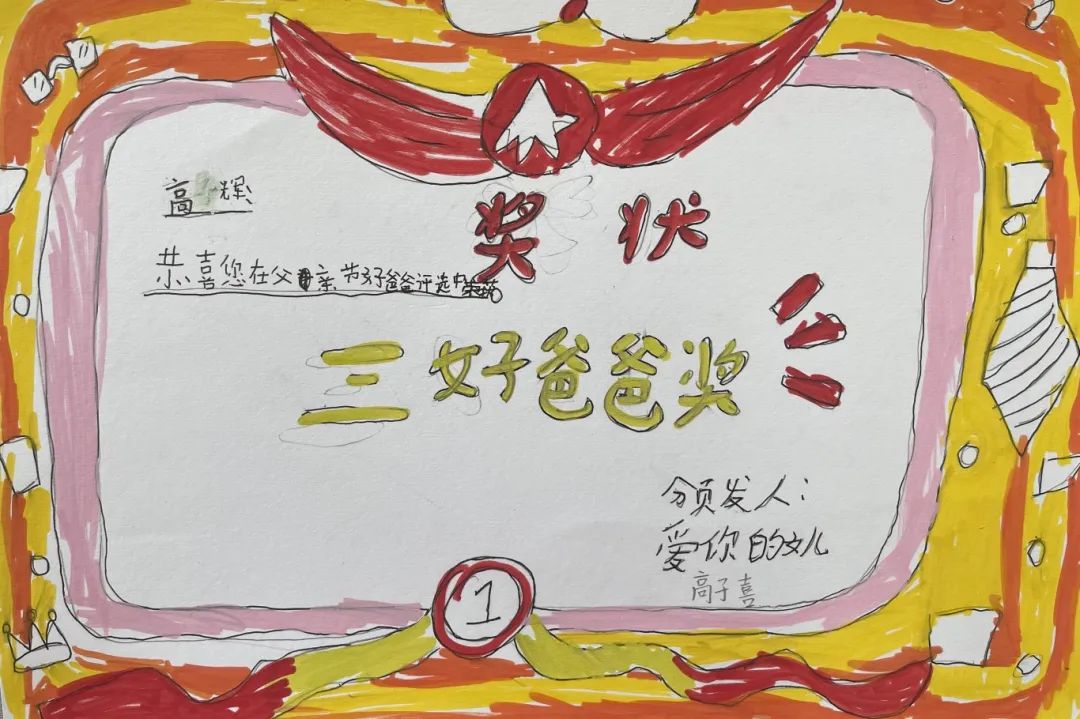 奖状
高辉
恭喜您在父亲节好爸爸评选中
三好爸爸奖
颁发人：
爱你的女儿
高子喜
1